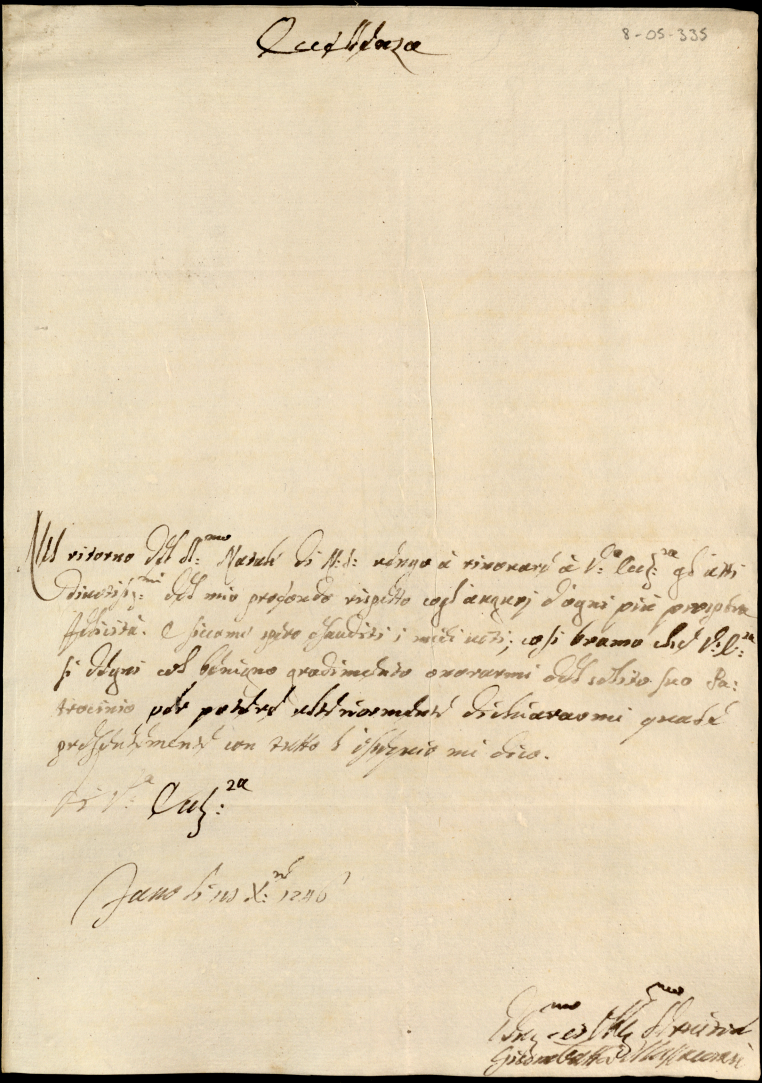 Eccellenza
8-05-335
Nel ritorno del S.mo Natale di N: S: vengo à rinovare à V:a Ecc:za gl'atti
del mio profondo rispetto cogl'augurj d'ogni più prospera
felicità. E siccome spero esauditi i miei voti; così bramo che V: E:za
si degni col benigno gradimento onorarmi del solito suo Pa:
trocinio per potere ulteriormente dichiararmi quale
presentemente con tutto l'ossequio mi dico.
Di V:a Ecc:za
Fano li X:bre 1746
mo Obb:mo Servitore